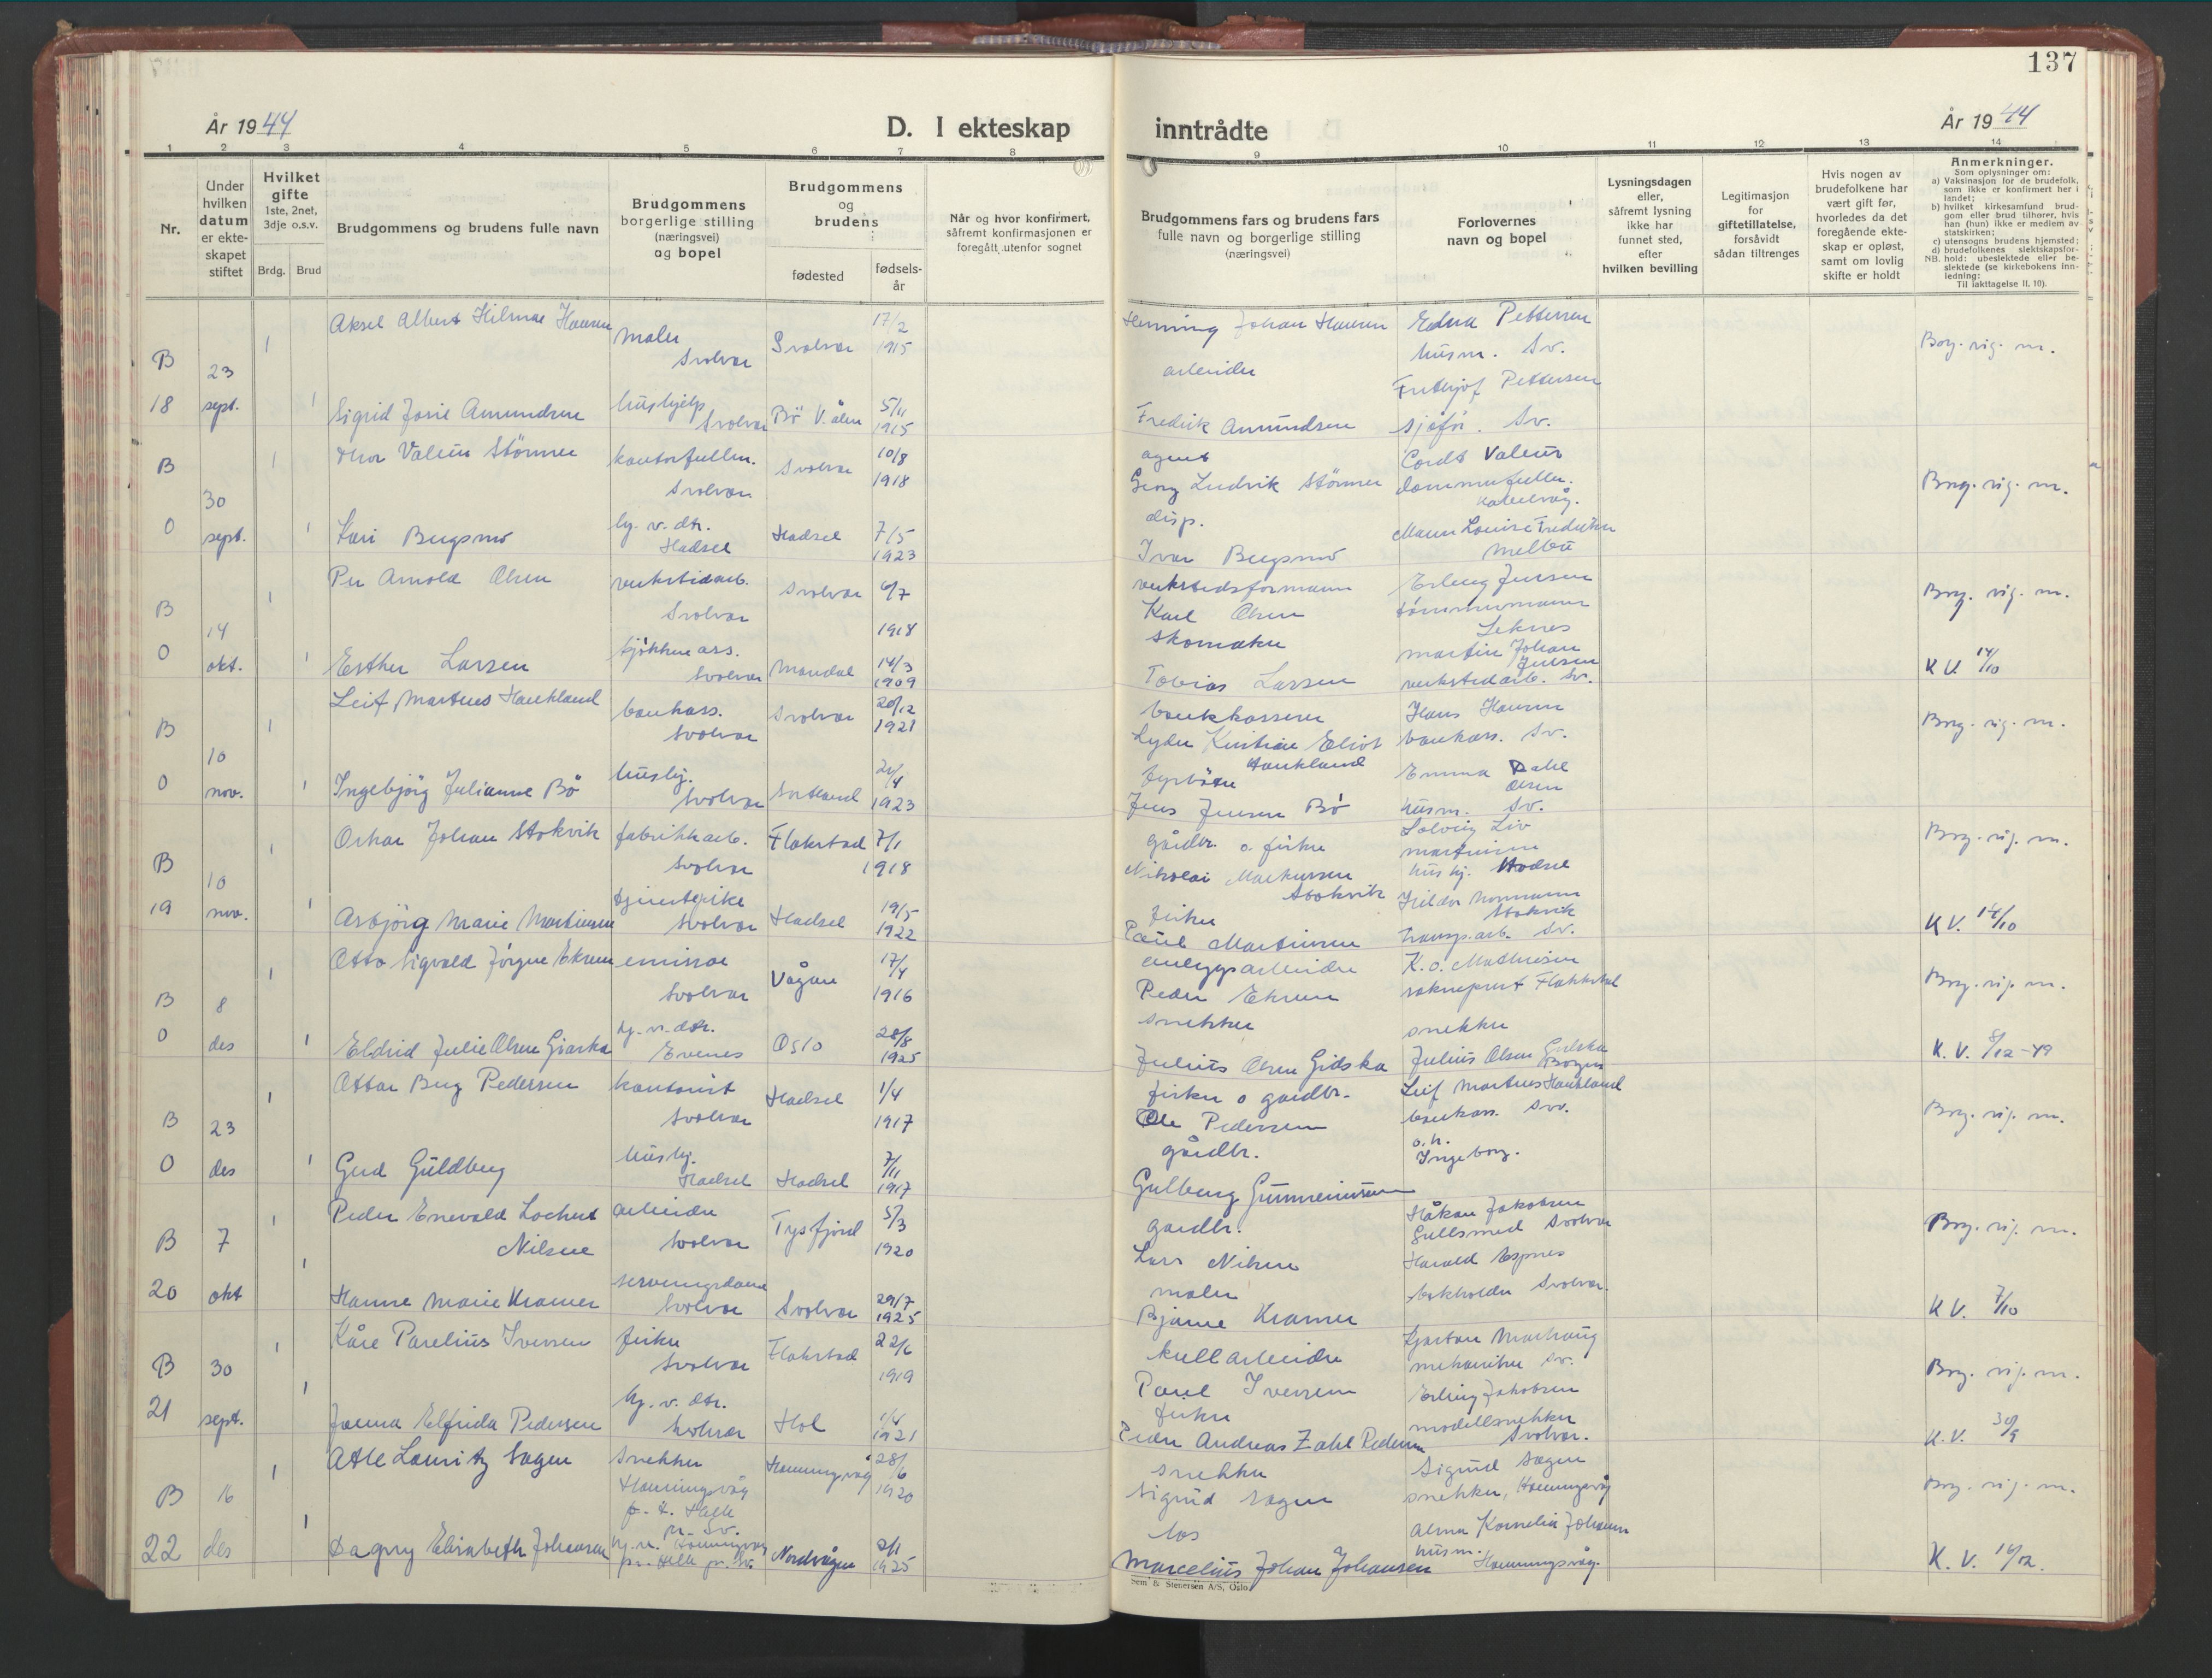 137
År 1944
D. I ekteskap inntrådte
År 1944
1 2 3 4 5 6 7 8 9 10 11 12 13 14
Nr.
Under hvilken datum er ekteskapet stiftet
Hvilket gifte
1ste, 2net, 3dje o.s.v.
Brdg. Brud
Brudgommens og brudens fulle navn
Brudgommens borgerlige stilling (næringsvei) og bopel
Brudgommens og brudens
fødested
fødselsår
Når og hvor konfirmert, såfremt konfirmasjonen er foregått utenfor sognet
Brudgommens fars og brudens fars fulle navn og borgerlige stilling (næringsvei)
Forlovernes navn og bopel
Lysningsdagen eller, såfremt lysning ikke har funnet sted, efter hvilken bevilling
Legitimasjon for giftetillatelse, forsåvidt sådan tiltrenges
Hvis nogen av brudefolkene har vært gift før, hvorledes da det foregående ekteskap er opløst, samt om lovlig skifte er holdt
Anmerkninger.
Som oplysninger om:
a) Vaksinasjon for de brudefolk, som ikke er konfirmert her i landet;
b) hvilket kirkesamfund brudgom eller brud tilhører, hvis han (hun) ikke er medlem av statskirken;
c) utensogns brudens hjemsted;
d) brudefolkenes slektskapsforhold: ubeslektede eller beslektede (se kirkebokens innledning:
NB.
Til iakttagelse II. 10).
B 18 23 sept. 1 1
Aksel Albert Hilmar Hansen maler Svolvær Svolvær 17/2 1915 Henning Johan Hansen arbeider Edna Pettersen husm. Sv. Borg. vig. m.
Sigrid Josie Amundsen hushjelp Svolvær Bø V.ålen 5/11 1915 Fredrik Amundsen agent Frithjof Pettersen sjøfør. Sv.
B O 30 sept. 1 1
Thor Valeur Størmer kontorfullm. Svolvær Svolvær 10/8 1918 Georg Ludvik Størmer disp. Cordt Valeur dommerfullm. Kabelvåg. Borg. vig. m.
Kari Bergsmo hj. v. dtr. Hadsel Hadsel 7/5 1923 Ivar Bergsmo verkstedsformann Louise Fredriksen Melbu
B O 14 okt. 1 1
Per Arnold Olsen verkstedarb. Svolvær Svolvær 6/7 1918 Karl Olsen skomaker Erling Jensen tømmermann Leknes Borg. vig. m.
Esther Larsen kjøkkenass. Svolvær Mandal 14/3 1909 Tobias Larsen bankkasserer Martin Johan Jensen verkstedarb. Sv. K V. 14/10
B O 10 nov. 1 1
Leif Martens Haukland bankass. Svolvær Svolvær 20/12 1921 Lyder Kristian Eliot Haukland fyrbøter Hans Hansen bankass. Sv. Borg. vig. m.
Ingebjørg Julianne Bø hushj. Svolvær Sortland 21/4 1923 Jens Jensen Bø gårdbr. o. fisker Emma Dahl Olsen husm. Sv.
B 19 10 nov. 1 1
Oskar Johan Stokvik fabrikkarb. Svolvær Flakstad 7/1 1918 Nikolai Markussen Stokvik fisker Solveig Liv Martinsen hushj. Hadsel Borg. vig. m.
Asbjørg Marie Martinsen tjenstepike Svolvær Hadsel 19/5 1922 Paul Martinsen anleggsarbeider Hildor Normann Stokvik transp.arb. Sv. K V. 14/10
B O 8 des 1 1
Otto Sigvald Jørgen Ekren emissær Svolvær Vågan 17/4 1916 Peder Ekren snekker K. O. Mathisen sokneprest Flakstad Borg. vig. m.
Eldrid Julie Olsen hj. v. dtr. Evenes Oslo 28/8 1925 Julius Olsen Gidska fisker o gårdbr. snekker Julius Olsen Bogen K. V. 8/12-49
B O 23 des 1 1
Ottar Berg Pedersen kontorist Svolvær Hadsel 1/4 1917 Ole Pedersen gårdbr. Leif Martens Haukland bankass. Sv. Borg. vig. m.
Gerd Guldberg hushj. Hadsel Hadsel 7/11 1917 gårdbr. o.h. Ingeborg.
B 20 7 okt 1 1
Peder Enevold Lochert Nilsen arbeider Svolvær Tysfjord 5/3 1920 Lars Nilsen maler Håkon Jakobsen Gullsmed Svolvær Borg. vig. m.
Hanne Marie Kramer serveringsdame Svolvær Svolvær 29/7 1925 Bjarne Kramer kullarbeider Harald Espnes bokholder Svolvær. K V. 7/10
B 21 30 sept. 1 1
Kåre Parelius Iversen fisker Svolvær Flakstad 22/6 1919 Paul Iversen fisker Kjartan Marhaug mekaniker Sv. Borg. vig. m.
Janna Elfrida Pedersen hj. v. dtr. Svolvær Hol 1/4 1921 Peder Andreas Zahl Pedersen snekker Erling Jakobsen modellsnekker Svolvær. K.V. 30/9
B 22 16 des 1 1
Atle Lauritz Sagen snekker Honningsvåg Honningsvåg 28/6 1920 Sigurd Sagen los Sigurd Sagen snekker, Honningsvåg Borg. vig. m.
Dagny Elisabeth Johansen Nordvågen 2/1 1925 Marcelius Johan Johansen Alma Kornelia Johansen husm. Honningsvåg. K. V. 16/12.
Sem & Stenersen A/S, Oslo